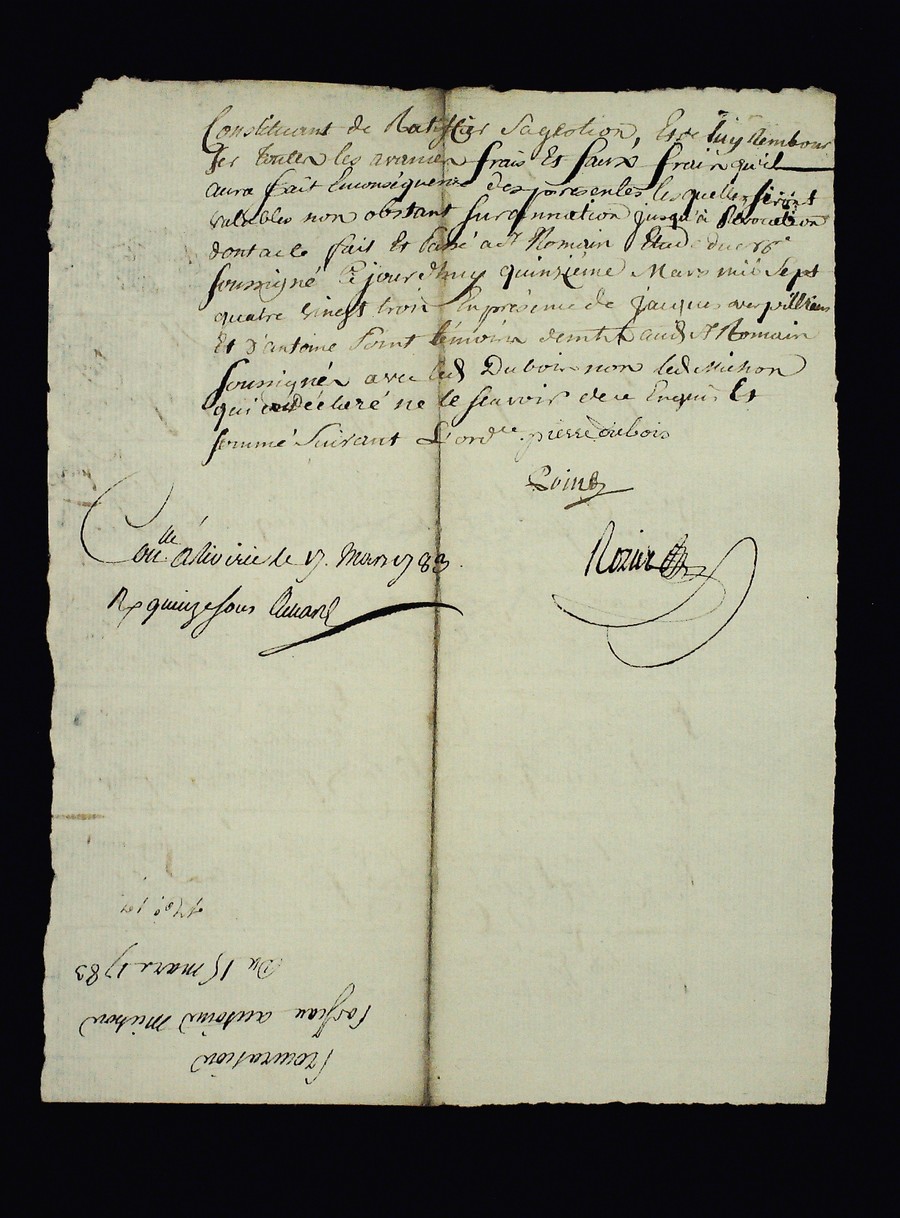 Constituant de Ratiffier Sagestion, Et de luy Rembour
ser toutes les avances frais Et faux frais qu'il
aura fait Enconséquence des presentes, lesquelles seront
valables non obstant surannation jusqu'à Révocation
dont acte fait Et passé a St Romain Etude du
soussigné Cejourdhuy quinzième Mars mil Sept
quatre vingt trois En présence de jacques verpillieux
Et d'antoine Point témoins demts aud St Romain
soussignés avec led Dubois non led Michon
qui a déclaré ne le scavoir de ce Enquis Et
sommé Suivant L'ordce pierre dubois
Point
Rozier
Coullé a Rivirie le 17. Mars 1783.
Rx quinze sous
Procuration
par Jean antoine Michon
Du 15 mars 1783